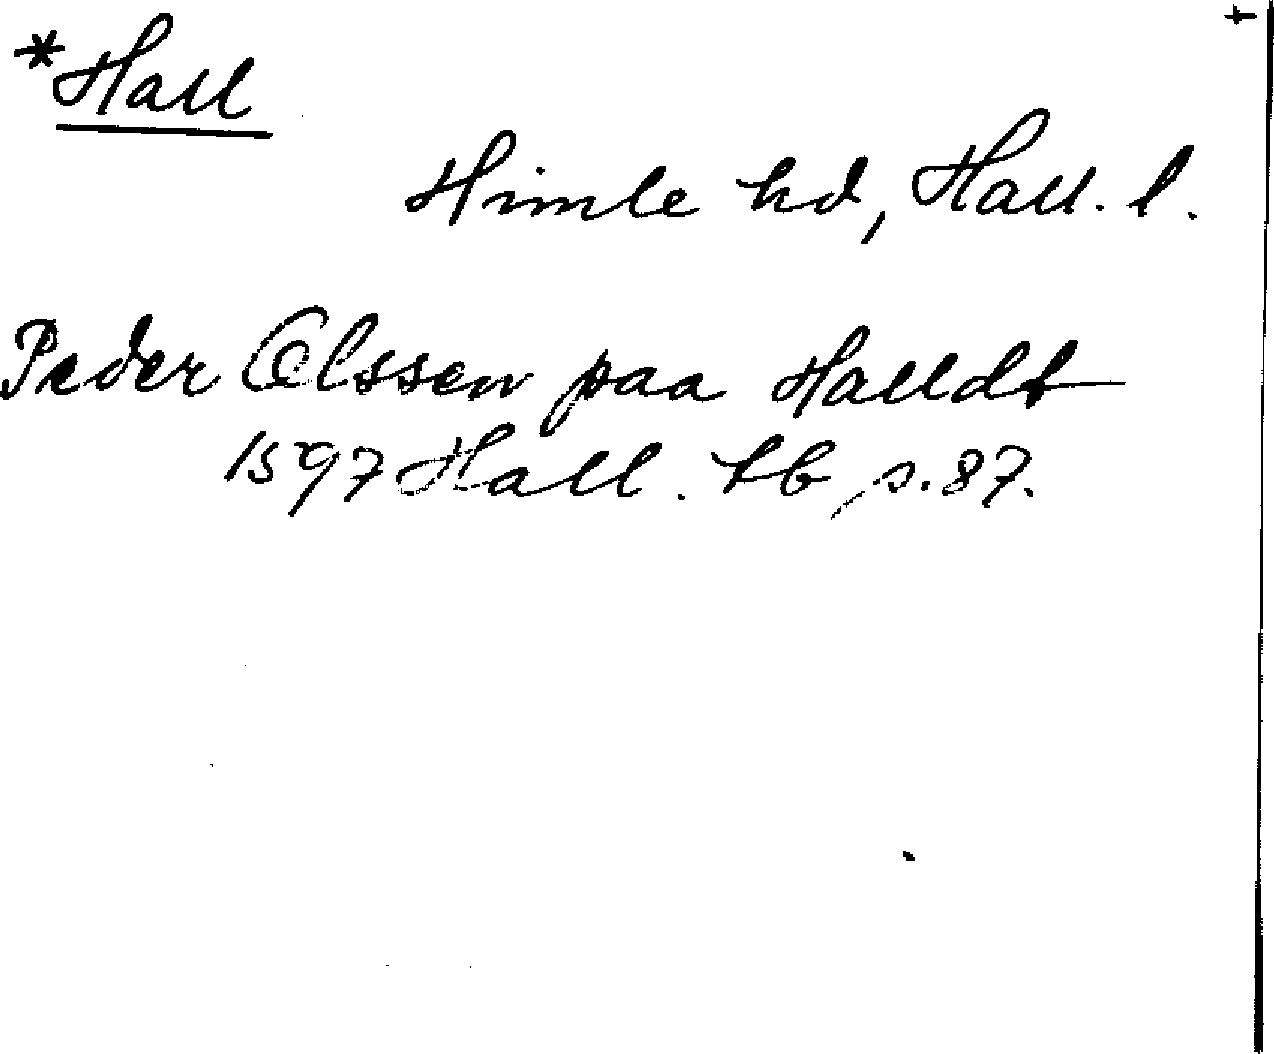 *Hall
Himle hd, Hall. l.
Peder Olssen paa Halldt
1597 Hall. tb s. 87.